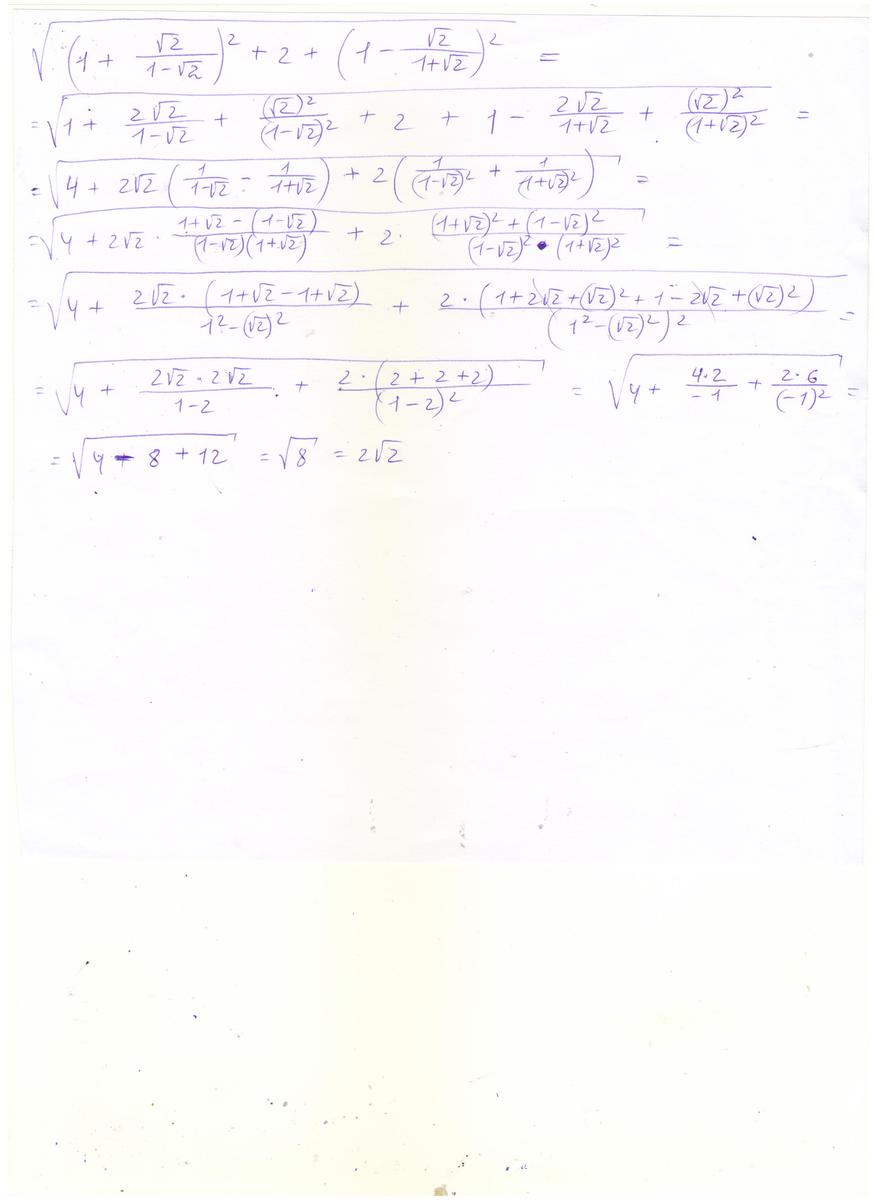 √((1 + √2/(1-√2))² + 2 + (1 - √2/(1+√2))²) =
= √(1 + 2√2/(1-√2) + (√2)²/(1-√2)² + 2 + 1 - 2√2/(1+√2) + (√2)²/(1+√2)²) =
= √(4 + 2√2 (1/(1-√2) - 1/(1+√2)) + 2 (1/(1-√2)² + 1/(1+√2)²)) =
= √(4 + 2√2 · (1+√2 - (1-√2))/((1-√2)(1+√2)) + 2 · ((1+√2)² + (1-√2)²)/((1-√2)² · (1+√2)²)) =
= √(4 + 2√2 · (1+√2-1+√2)/(1²-(√2)²) + 2 · (1+2√2+(√2)²+1-2√2+(√2)²)/(1²-(√2)²)²) =
= √(4 + 2√2 · 2√2/(1-2) + 2 · (2+2+2)/(1-2)²) = √(4 + 4·2/-1 + 2·6/(-1)²) =
= √(4 - 8 + 12) = √8 = 2√2